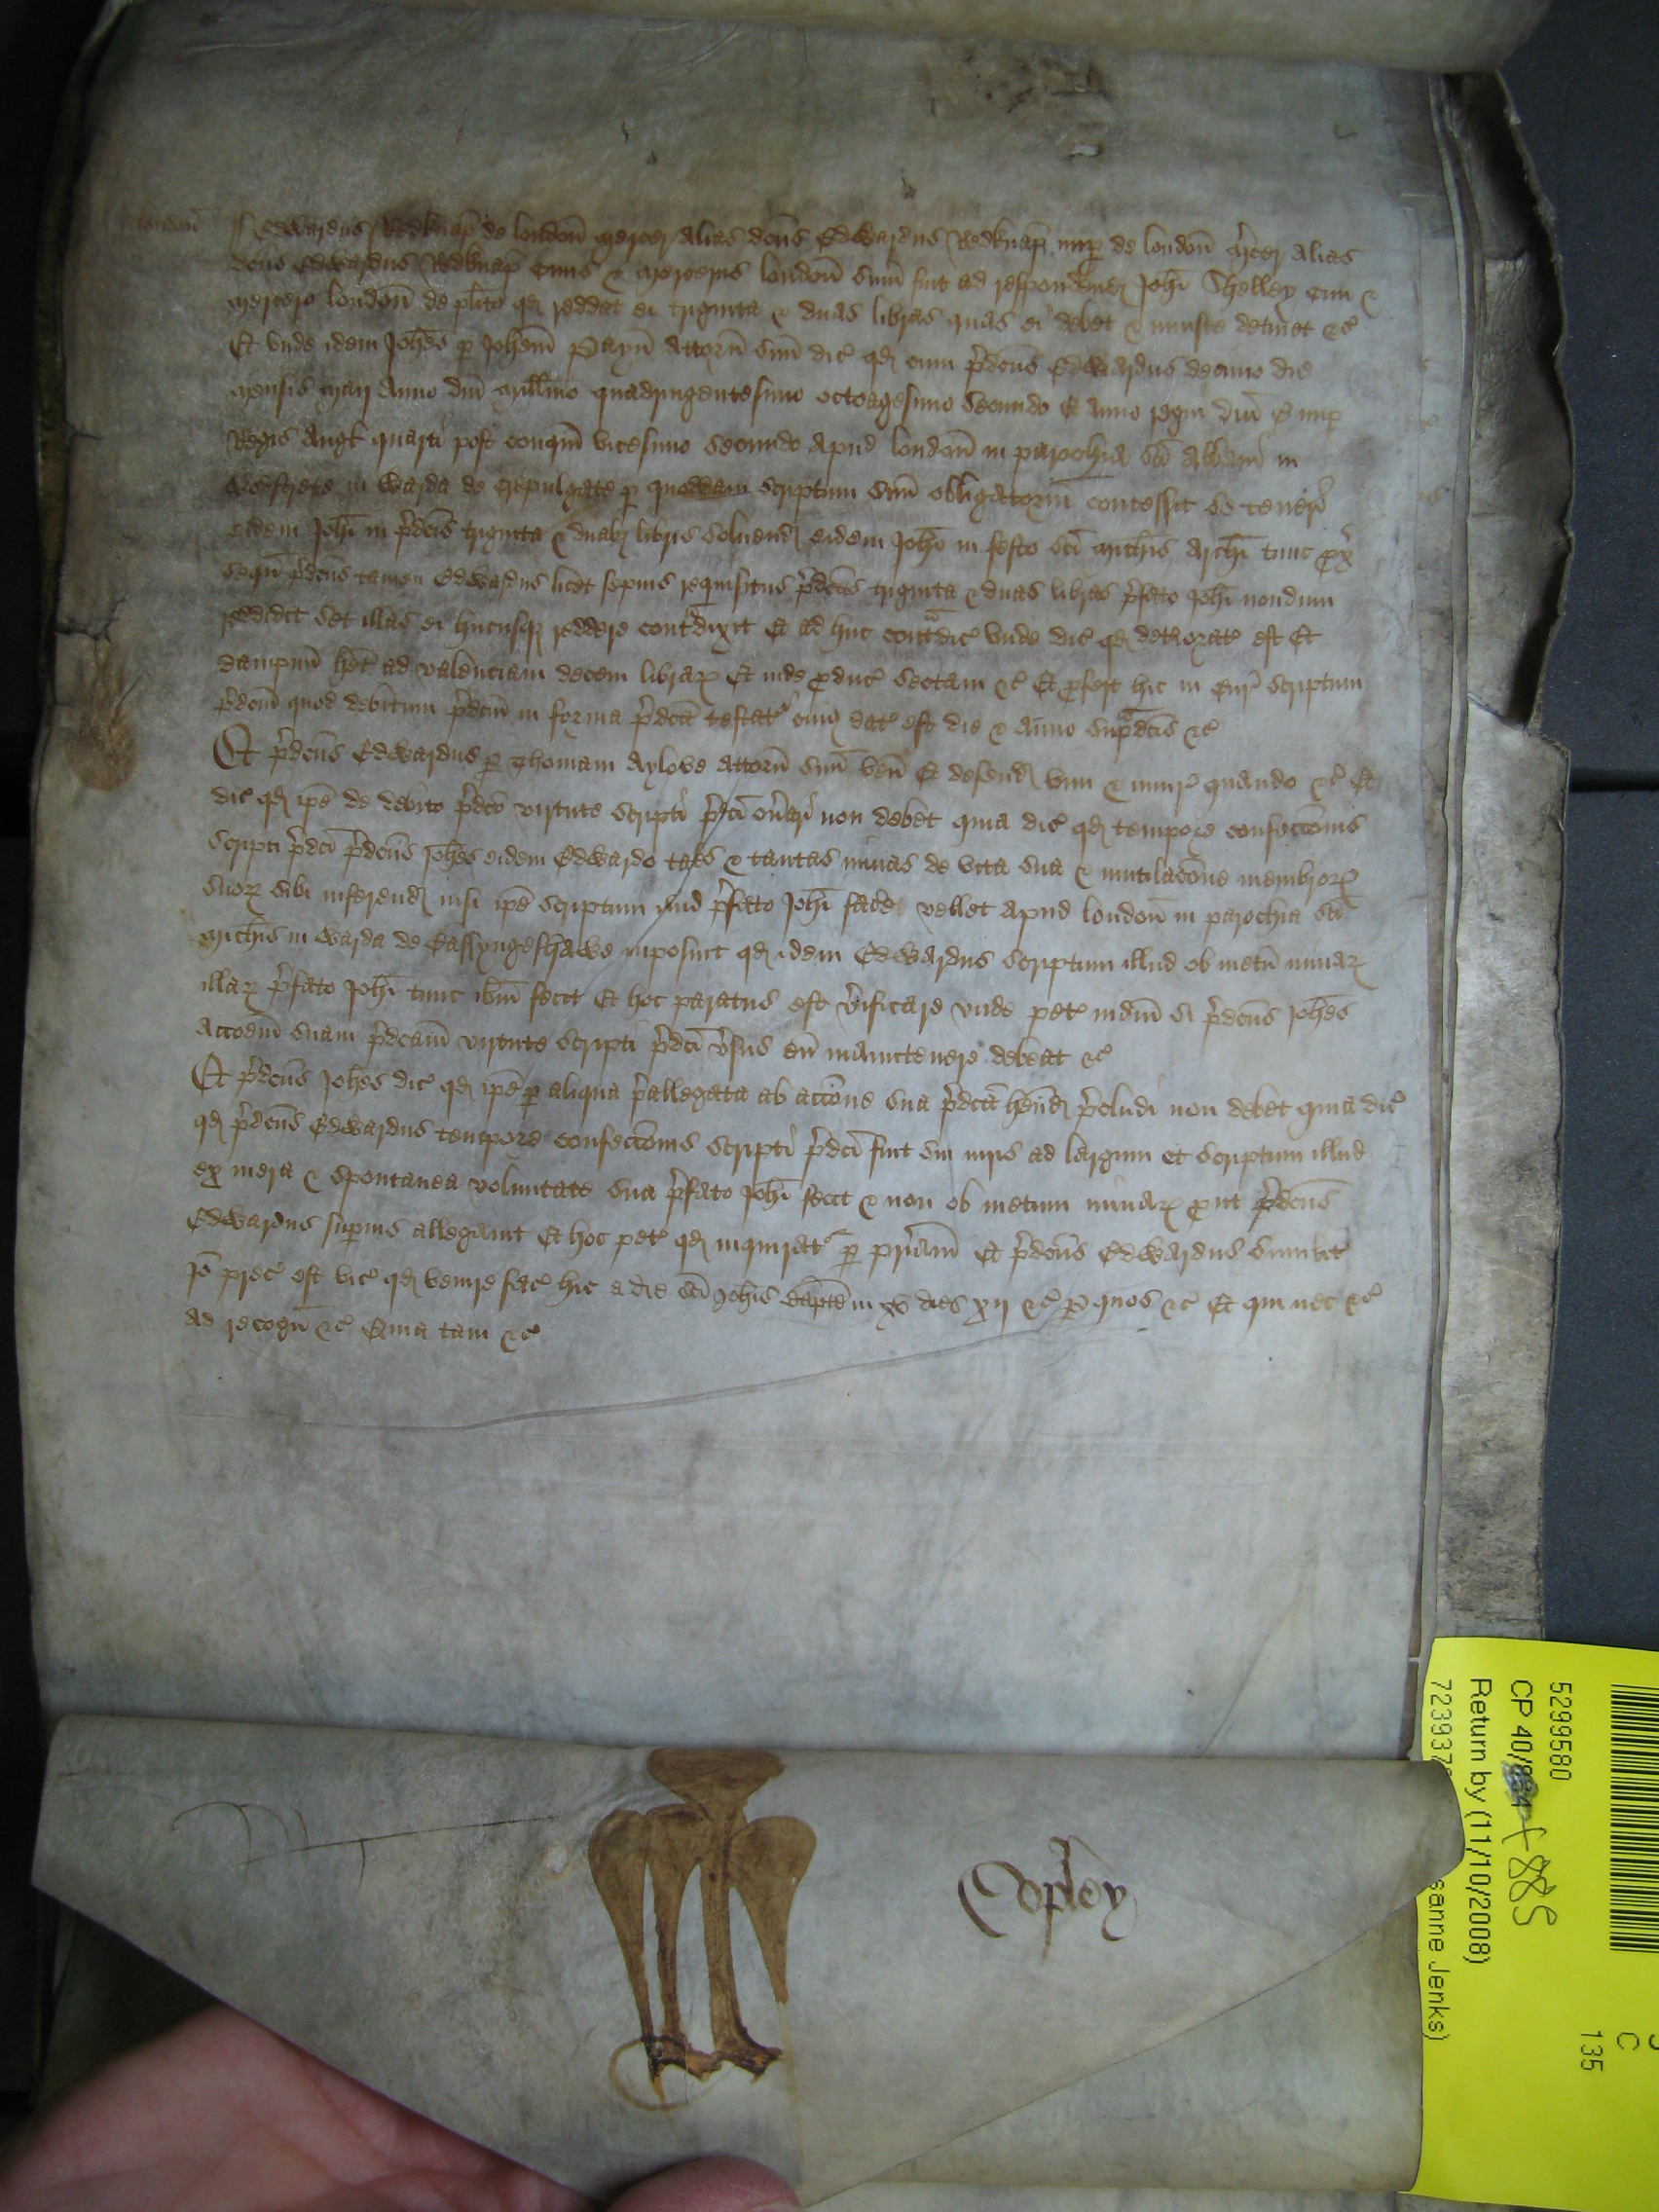 londoñ
Edwardus Redknap de londoñ mercer alias dc̃us Edwardus Redknap nup de londoñ m̃cer alias
dc̃us Edwardus Redknap Ciuis & mercerus londoñ sum̃ fuit ad respondend Joh̃i Shelley Ciui &
mercero londoñ de pl̃ito qd reddat ei triginta & duas libras quas ei debet & iniuste detinet &c̃
Et vnde idem Joh̃es p Joh̃em Payñ attorñ suũ dic̃ qd cum p̃dc̃us Edwardus decimo die
mensis maij Anno dñi mill̃mo quadringentesimo octogesimo secundo Et anno regni dñi E nup
Regis Angł quarti post conqm̃ vicesimo secundo apud londoñ in parochia sc̃i Albani in
Wodstrete in Warda de Crepulgate p quoddam scriptum suũ obligatoriũ concessit se teneri
eidem Joh̃i in p̃dc̃is triginta & duab libris soluend eidem Joh̃i in festo sc̃i Mich̃is Arch̃i tunc px̃
sequ p̃dc̃us tamen Edwardus licet sepius requisitus p̃dc̃as triginta & duas libras p̃fato Joh̃i nondum
reddidit set illas ei hucusq reddere contradixit Et ad huc contradic̃ vnde dic̃ qd deteriorat̃ est Et
dampnũ het ad valenciam decem librar Et inde pduc̃ sectam &c̃ Et pfert hic in Cur̃ scriptum
p̃dc̃m quod debitum p̃dc̃m in forma p̃dc̃a testat̃ cuius dat̃ est die & anno sup̃dc̃is &c̃
Et p̃dc̃us Edwardus p Thomam Aylove attorñ suũ veñ Et defend vim & iniur̃ quando &c̃ Et
dic̃ qd ip̃e de debito p̃dc̃o virtute scripti p̃dc̃i on̓ari non debet quia dic̃ qd tempore confecc̃onis
scripti p̃dc̃i p̃dc̃us Joh̃es eidem Edwardo tales & tantas minas de vita sua & mutilac̃one membror
suor sibi inferend nisi ip̃e scriptum illud p̃fato Joh̃i facẽ vellet apud londoñ in parochia sc̃i
Mich̃is in Warda de Bassyngeshawe inposuit qd idem Edwardus scriptum illud ob metũ minar
illar p̃fato Joh̃i tunc ib̃m fecit Et hoc paratus est v̓ificare vnde pet̃ iudm̃ si p̃dc̃us Joh̃es
acc̃oem suam p̃dc̃am virtute scripti p̃dc̃i v̓sus eũ manutenere debeat &c̃
Et p̃dc̃us Joh̃es dic̃ qd ip̃e p aliqua p̃allegata ab acc̃one sua p̃dc̃a hend p̃cludi non debet quia dic̃
qd p̃dc̃us Edwardus tempore confecc̃onis scripti p̃dc̃i fuit sui iuris ad largum et scriptum illud
ex mera & spontanea voluntate sua p̃fato Joh̃i fecit & non ob metum minar put p̃dc̃us
Edwardus supius allegauit Et hoc pet̃ qd inquirat̃ p pr̃iam Et p̃dc̃us Edwardus simił̃it
Jõ prec̃ est vic̃ qd venire fac̃ hic a die sc̃i Joh̃is Bapt̃e in xv dies xij &c̃ p quos &c̃ Et qui nec &c̃
ad recogñ &c̃ Quia tam &c̃
Copley
5299580
CP 40/
885
Return by (11/10/2008)
sanne Jenks)
C
135